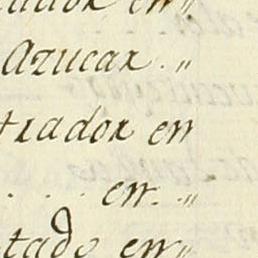 en „
Azucar . „
trador en
. . . en . „
tado en „